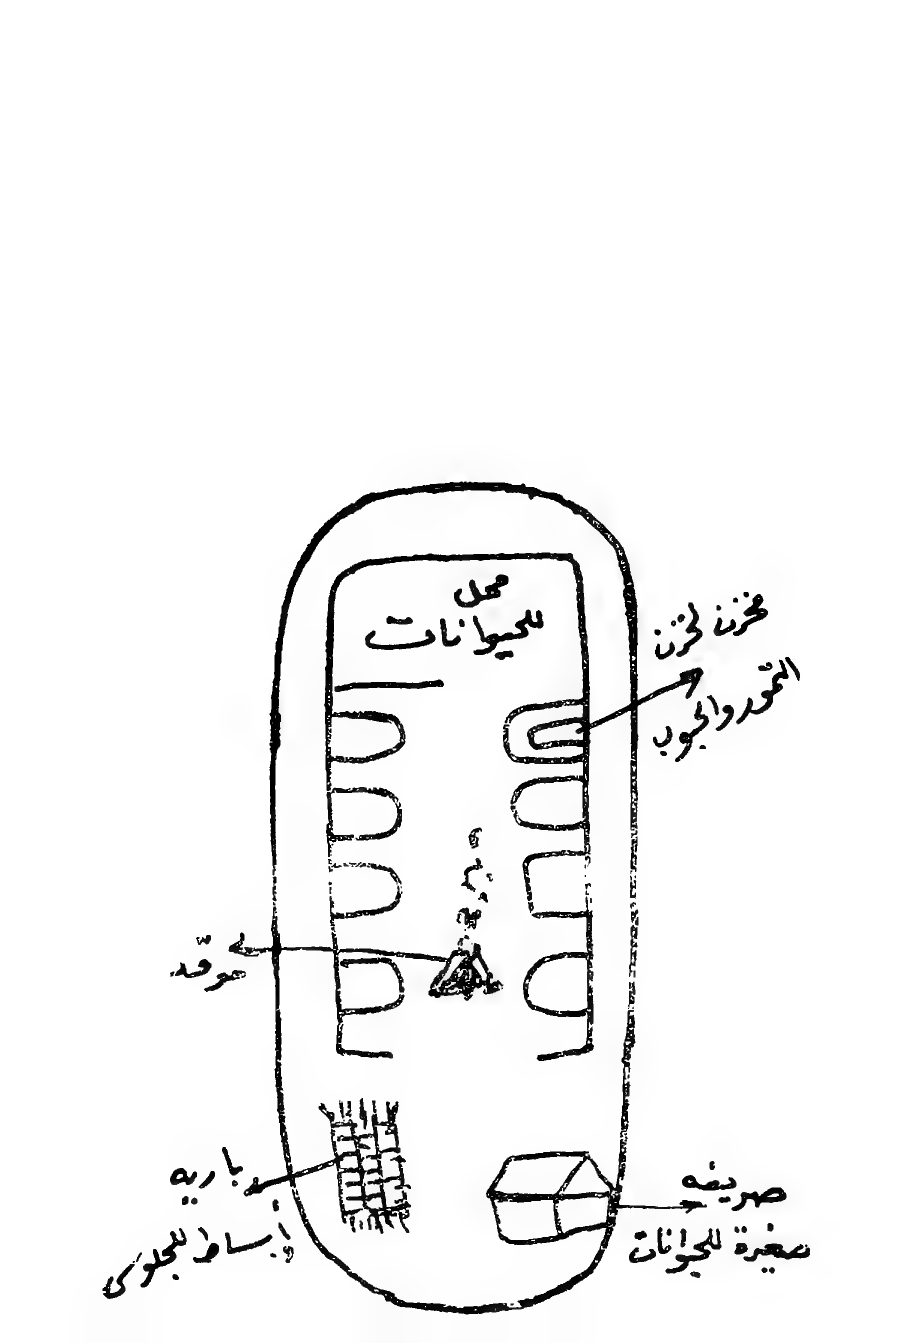 محل
للحيوانات
مخزن لخزن
التمور والحبوب
موقد
باريه
أبساط للجلوس
صريفه
صغيرة للحيوانات